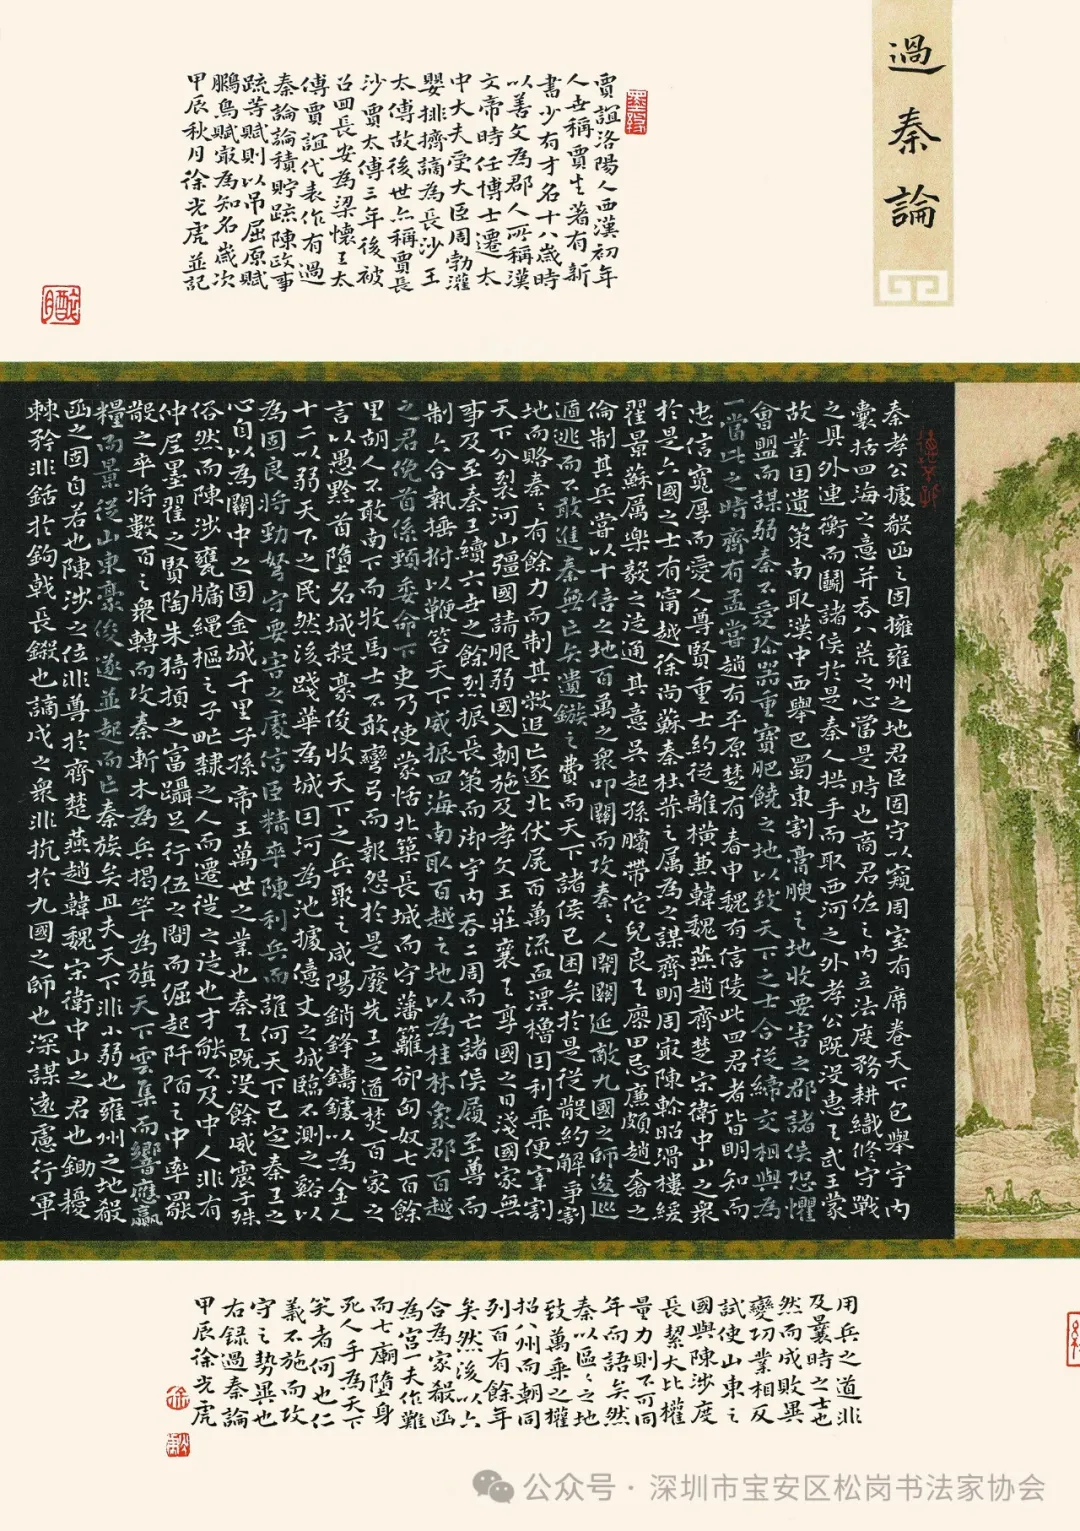 過秦論
賈誼洛陽人西漢初年
人世稱賈生著有新
書少有才名十八歲時
以善文為郡人所稱漢
文帝時任博士遷太
中大夫受大臣周勃灌
嬰排擠謫為長沙王
太傅故後世亦稱賈長
沙賈太傅三年後被
召回長安為梁懷王太
傅賈誼代表作有過
秦論論積貯疏陳政事
疏等賦則以吊屈原賦
鵩鳥賦最為知名歲次
甲辰秋月徐光虎並記
秦孝公據殽函之固擁雍州之地君臣固守以窺周室有席卷天下包舉宇內
囊括四海之意并吞八荒之心當是時也商君佐之內立法度務耕織修守戰
之具外連衡而鬬諸侯於是秦人拱手而取西河之外孝公既没惠王武王蒙
故業因遺策南取漢中西舉巴蜀東割膏腴之地收要害之郡諸侯恐懼
會盟而謀弱秦不愛珍器重寶肥饒之地以致天下之士合從締交相與為
一當此之時齊有孟嘗趙有平原楚有春申魏有信陵此四君者皆明知而
忠信寬厚而愛人尊賢重士約從離橫兼韓魏燕趙齊楚宋衛中山之眾
於是六國之士有甯越徐尚蘇秦杜赫之屬為之謀齊明周最陳軫昭滑樓緩
翟景蘇厲樂毅之徒通其意吳起孫臏帶佗兒良王廖田忌廉頗趙奢之
倫制其兵嘗以十倍之地百萬之眾叩關而攻秦〻人開關延敵九國之師逡巡
遁逃而不敢進秦無亡矢遺鏃之費而天下諸侯已困矣於是從散約解爭割
地而賂秦〻有餘力而制其敝追亡逐北伏尸百萬流血漂櫓因利乘便宰割
天下分裂河山彊國請服弱國入朝施及孝文王莊襄王享國之日淺國家無
事及至秦王續六世之餘烈振長策而御宇內吞二周而亡諸侯履至尊而
制六合執棰拊以鞭笞天下威振四海南取百越之地以為桂林象郡百越
之君俛首係頸委命下吏乃使蒙恬北築長城而守藩籬卻匈奴七百餘
里胡人不敢南下而牧馬士不敢彎弓而報怨於是廢先王之道焚百家之
言以愚黔首墮名城殺豪俊收天下之兵聚之咸陽銷鋒鑄鐻以為金人
十二以弱天下之民然後踐華為城因河為池據億丈之城臨不測之谿以
為固良將勁弩守要害之處信臣精卒陳利兵而誰何天下已定秦王之
心自以為關中之固金城千里子孫帝王萬世之業也秦王既没餘威震于殊
俗然而陳涉甕牖繩樞之子甿隸之人而遷徙之徒也才能不及中人非有
仲尼墨翟之賢陶朱猗頓之富躡足行伍之間而倔起阡陌之中率罷
散之卒將數百之衆轉而攻秦斬木為兵揭竿為旗天下雲集而響應贏
糧而景從山東豪俊遂並起而亡秦族矣且夫天下非小弱也雍州之地殽
函之固自若也陳涉之位非尊於齊楚燕趙韓魏宋衛中山之君也鋤耰
棘矜非銛於鉤戟長鎩也謫戍之衆非抗於九國之師也深謀遠慮行軍
用兵之道非
及曩時之士也
然而成敗異
變功業相反
試使山東之
國與陳涉度
長絜大比權
量力則不可同
年而語矣然
秦以區〻之地
致萬乘之權
招八州而朝同
列百有餘年
矣然後以六
合為家殽函
為宮一夫作難
而七廟墮身
死人手為天下
笑者何也仁
義不施而攻
守之勢異也
右錄過秦論
甲辰徐光虎
公众号 · 深圳市宝安区松岗书法家协会